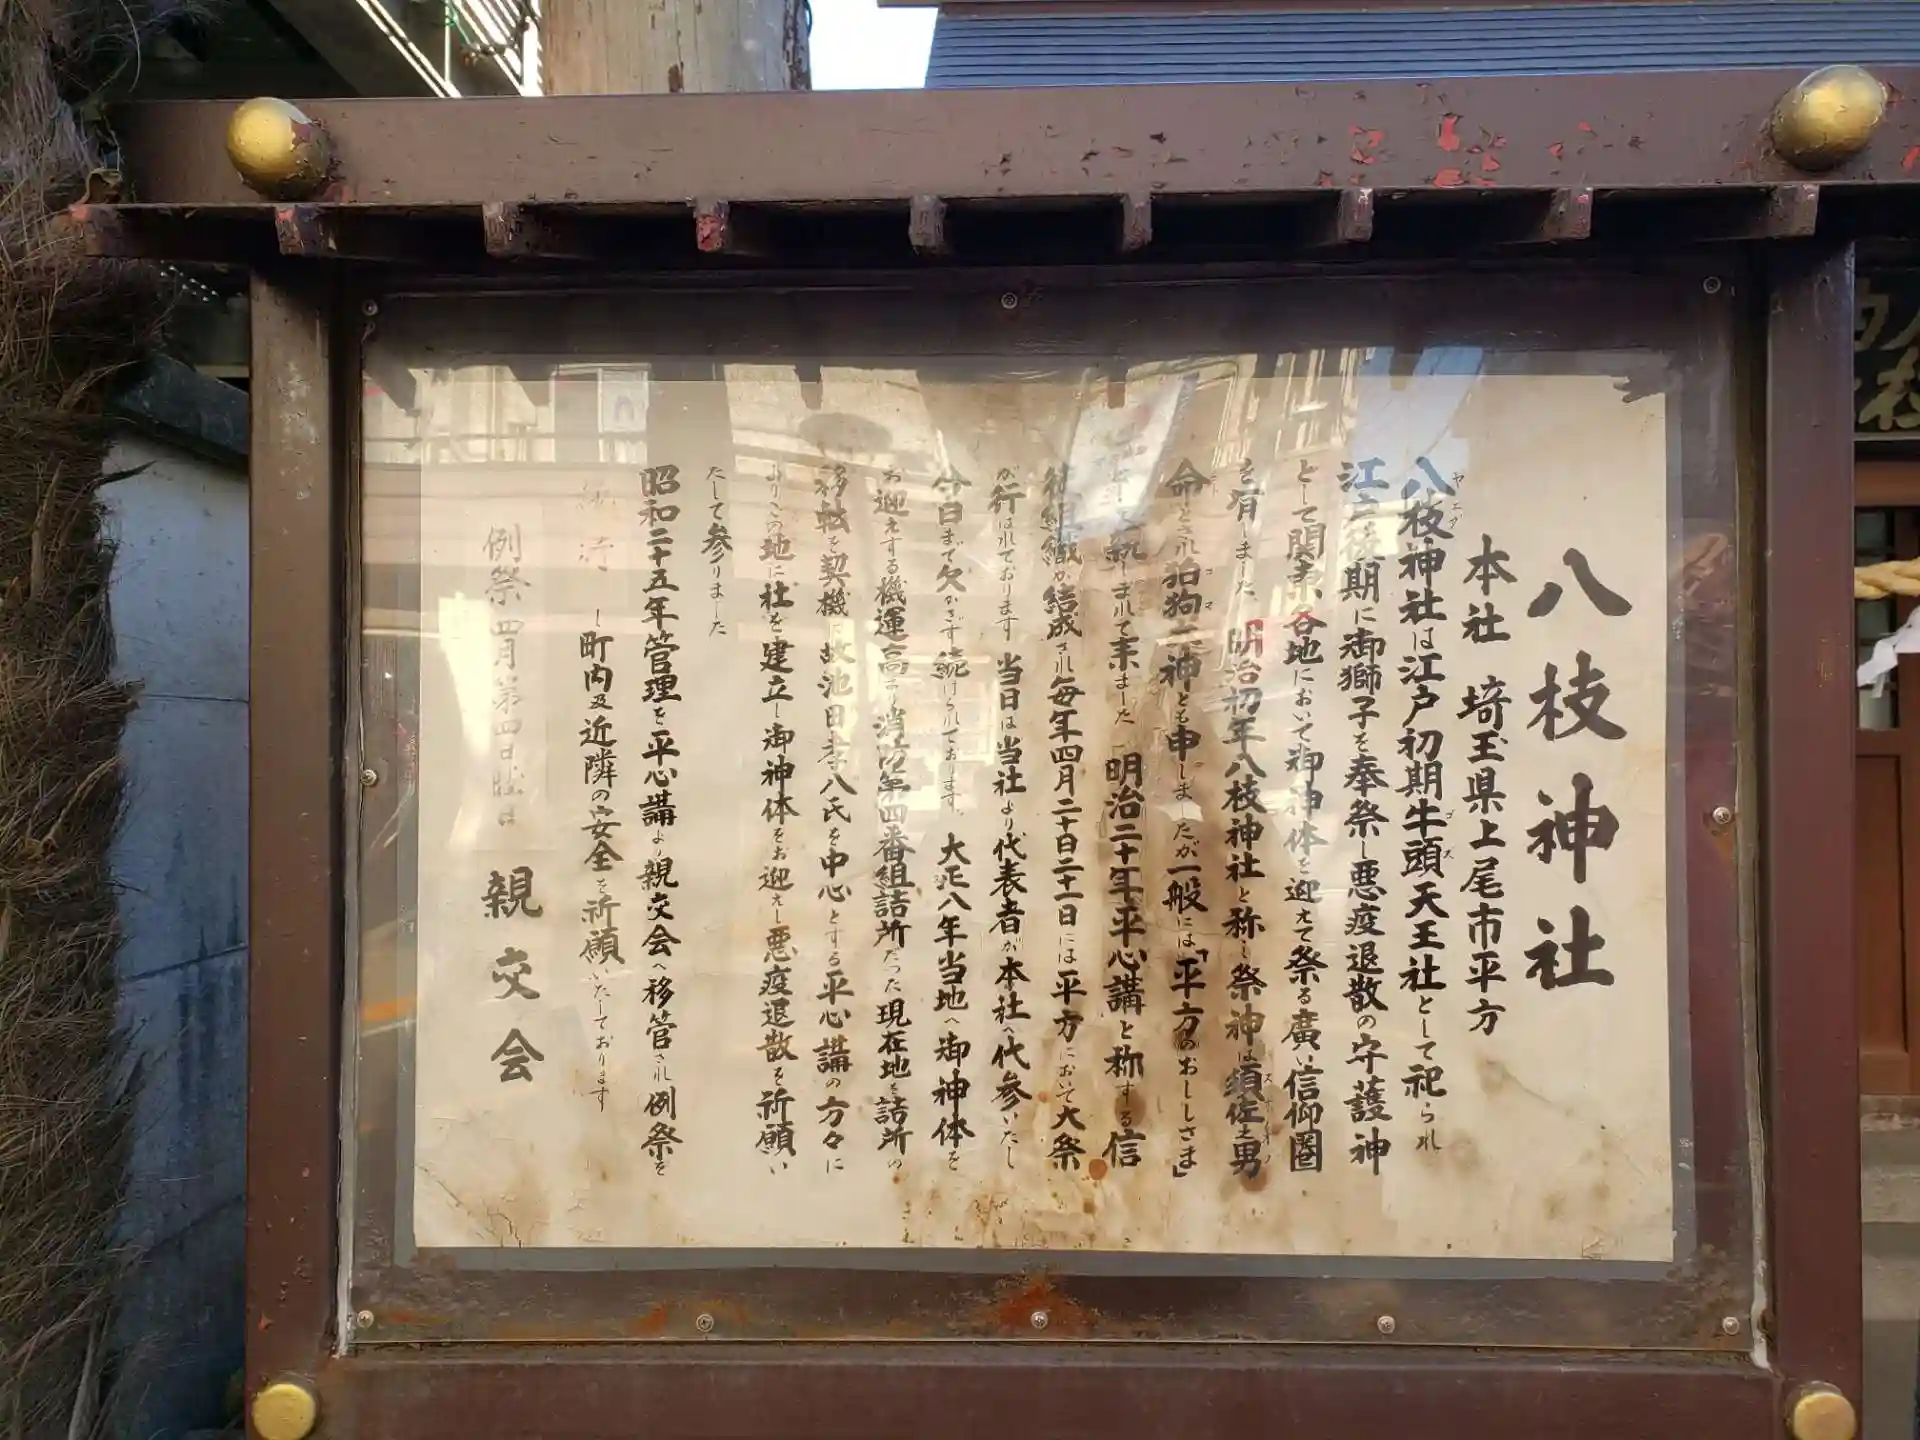 八枝神社
本社 埼玉県上尾市平方
八枝神社は江戸初期牛頭天王社として祀られ
ヤエダ
ゴズ
江戸後期に御獅子を奉祭し悪疫退散の守護神
として関東各地において御神体を迎えて祭る廣い信仰圏
を有しました、明治初年八枝神社と称し祭神は須佐之男
スサノオノ
命とされ狛狗大神とも申しましたが一般には「平方のおしししさま」
コマ
として親しまれて来ました 明治二十年平心講と称する信
徒組織が結成され毎年四月二十日二十一日には平方において大祭
が行はれております 当日は当社より代表者が本社へ代参いたし
今日まで欠かさず続けられております、大正八年当地へ御神体を
お迎えする機運高まり消防第四番組詰所だった現在地を詰所の
移転を契機に故池田孝八氏を中心とする平心講の方々に
よりこの地に社を建立し御神体をお迎えし悪疫退散を祈願い
たして参りました
昭和二十五年管理を平心講より親交会へ移管され例祭を
し町内及近隣の安全を祈願いたしております
例祭 四月第四日曜日 親交会